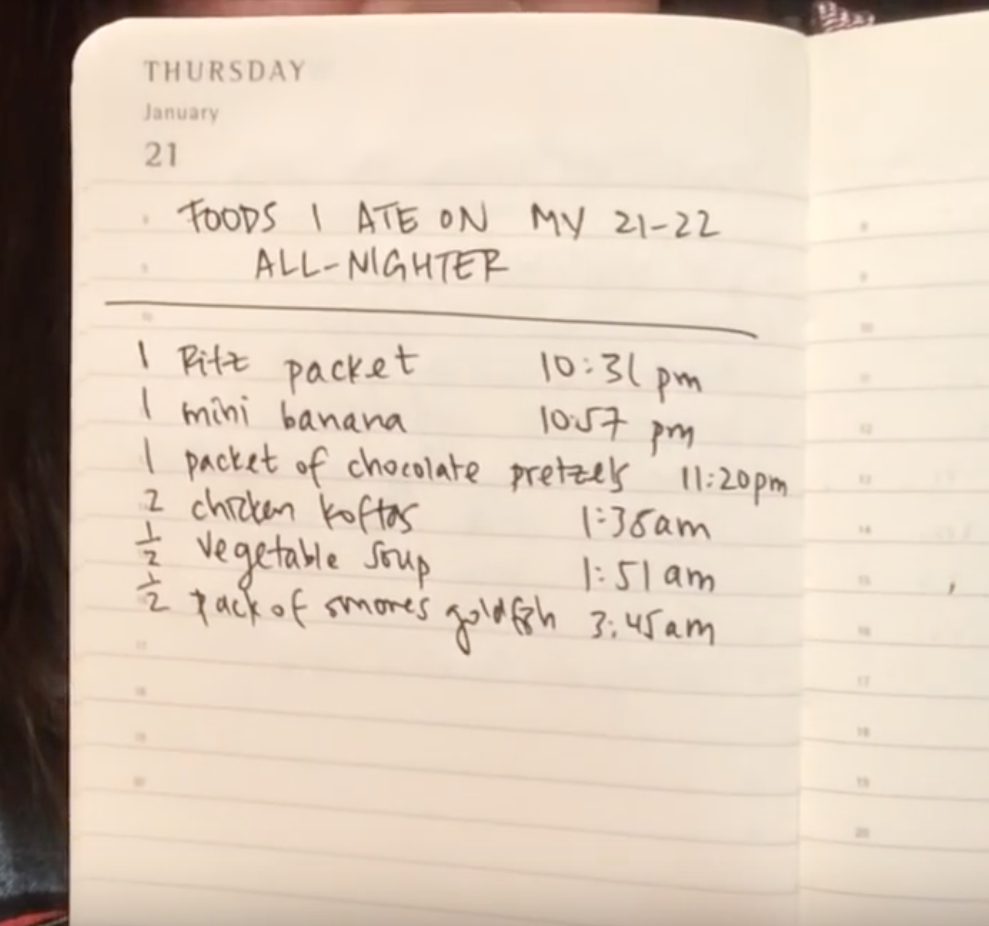 THURSDAY
January
21
FOODS I ATE ON MY 21-22
ALL-NIGHTER
1 Ritz packet 10:31 pm
1 mini banana 10:57 pm
1 packet of chocolate pretzels 11:20pm
2 chicken koftas 1:38am
1/2 vegetable soup 1:51 am
1/2 pack of smores goldfish 3:45am